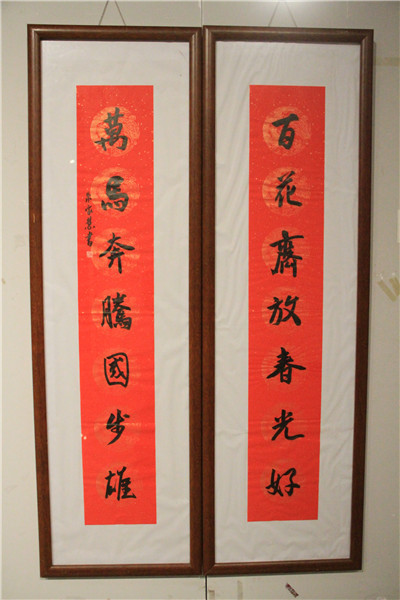 百花齊放春光好
萬馬奔騰國步雄